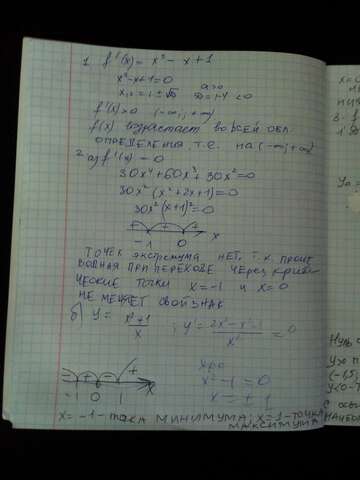 1. f'(x) = x² - x + 1
x² - x + 1 = 0
x₁,₂ = 1 ± √ a>0 D = 1-4 < 0
f'(x) > 0 (-∞; +∞)
f(x) возрастает во всей обл.
определения, т.е. на (-∞; +∞)
2. а) f'(x) = 0
30x⁴ + 60x³ + 30x² = 0
30x² (x² + 2x + 1) = 0
30x² (x+1)² = 0
-1 0 x
точек экстремума нет, т.к. произ
водная при переходе через крити
ческие точки x = -1 и x = 0
не меняет свой знак
б) y = x²+1 / x ; y' = 2x² - x² - 1 / x² = 0
x≠0
x² - 1 = 0
x = ± 1
- + - +
-1 0 1 x
x = -1 - точка минимума; x = 1 - точка
максимума